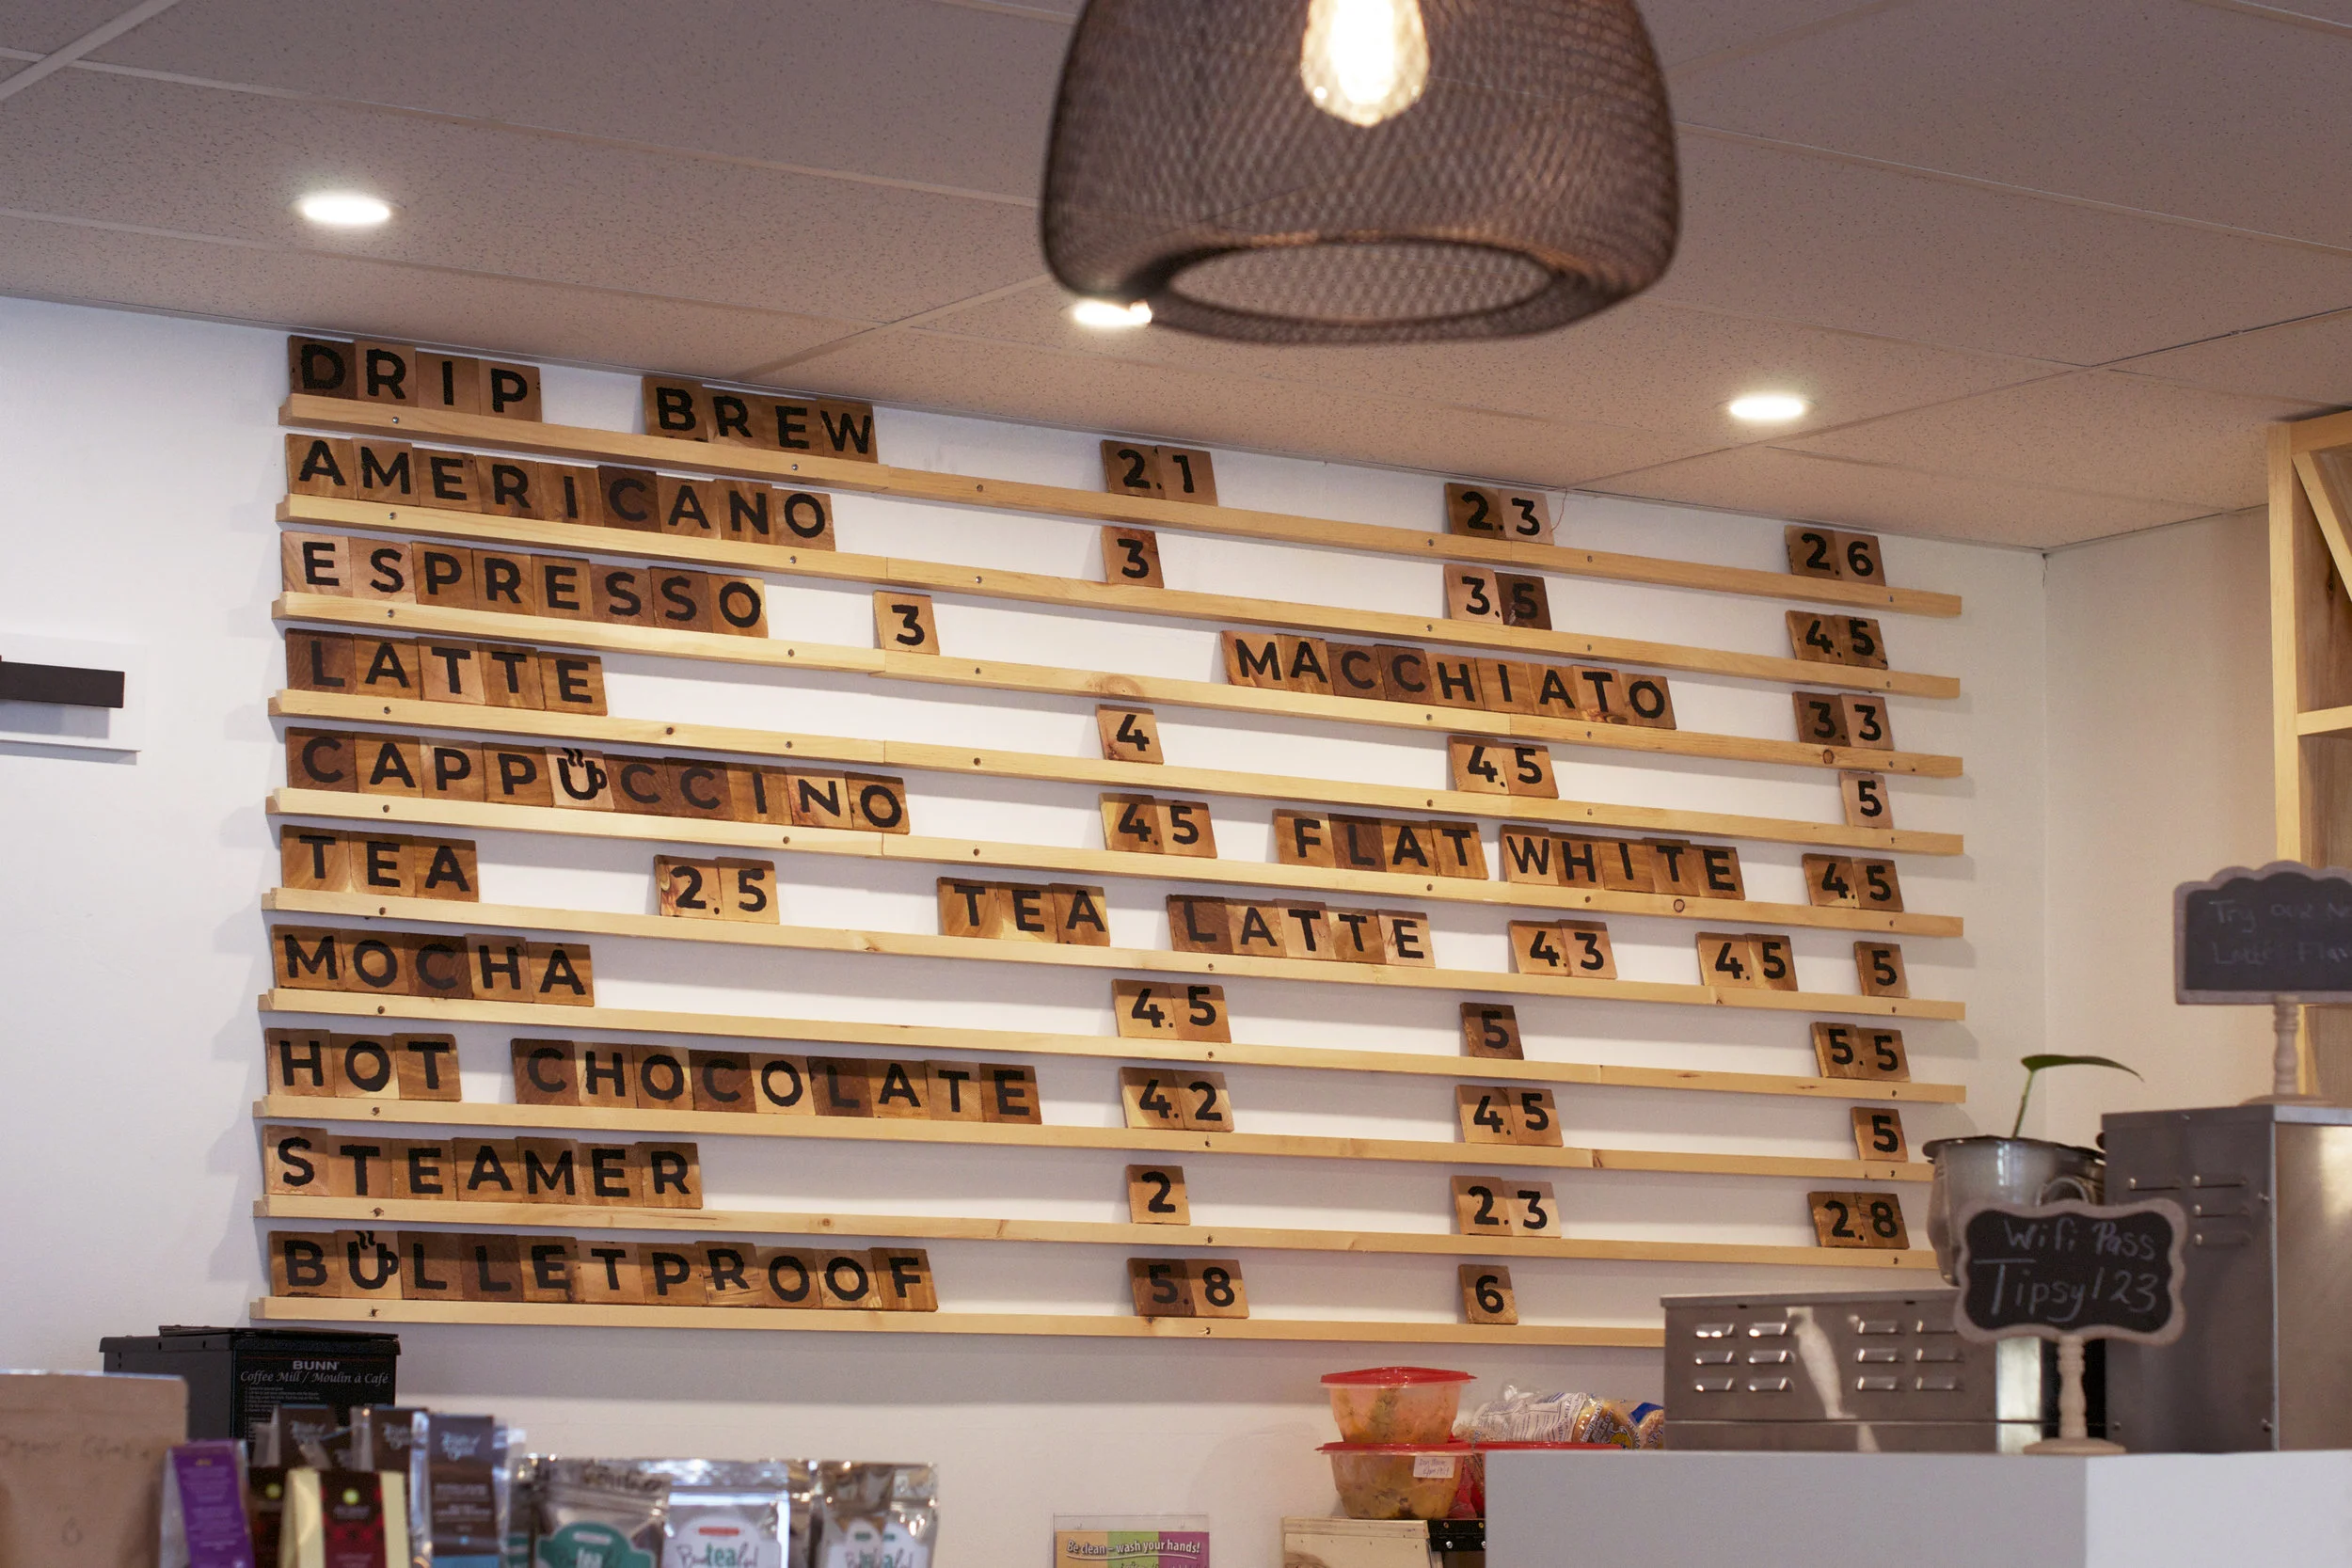 DRIP BREW 2.1 2.3 2.6
AMERICANO 3 3.5 4.5
ESPRESSO 3 MACCHIATO 3.3
LATTE 4 4.5 5
CAPPUCCINO 4.5 FLAT WHITE 4.5
TEA 2.5 TEA LATTE 4.3 4.5 5
MOCHA 4.5 5 5.5
HOT CHOCOLATE 4.2 4.5 5
STEAMER 2 2.3 2.8
BULLETPROOF 5.8 6
Try our
Latte
Wifi Pass
Tipsy123
BUNN
Coffee Mill / Moulin à Café
tea
tea
Be clean – wash your hands!